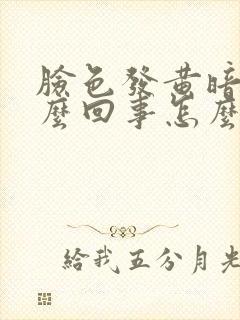 臉色發黃暗
麼回事怎麼
給我五分月光